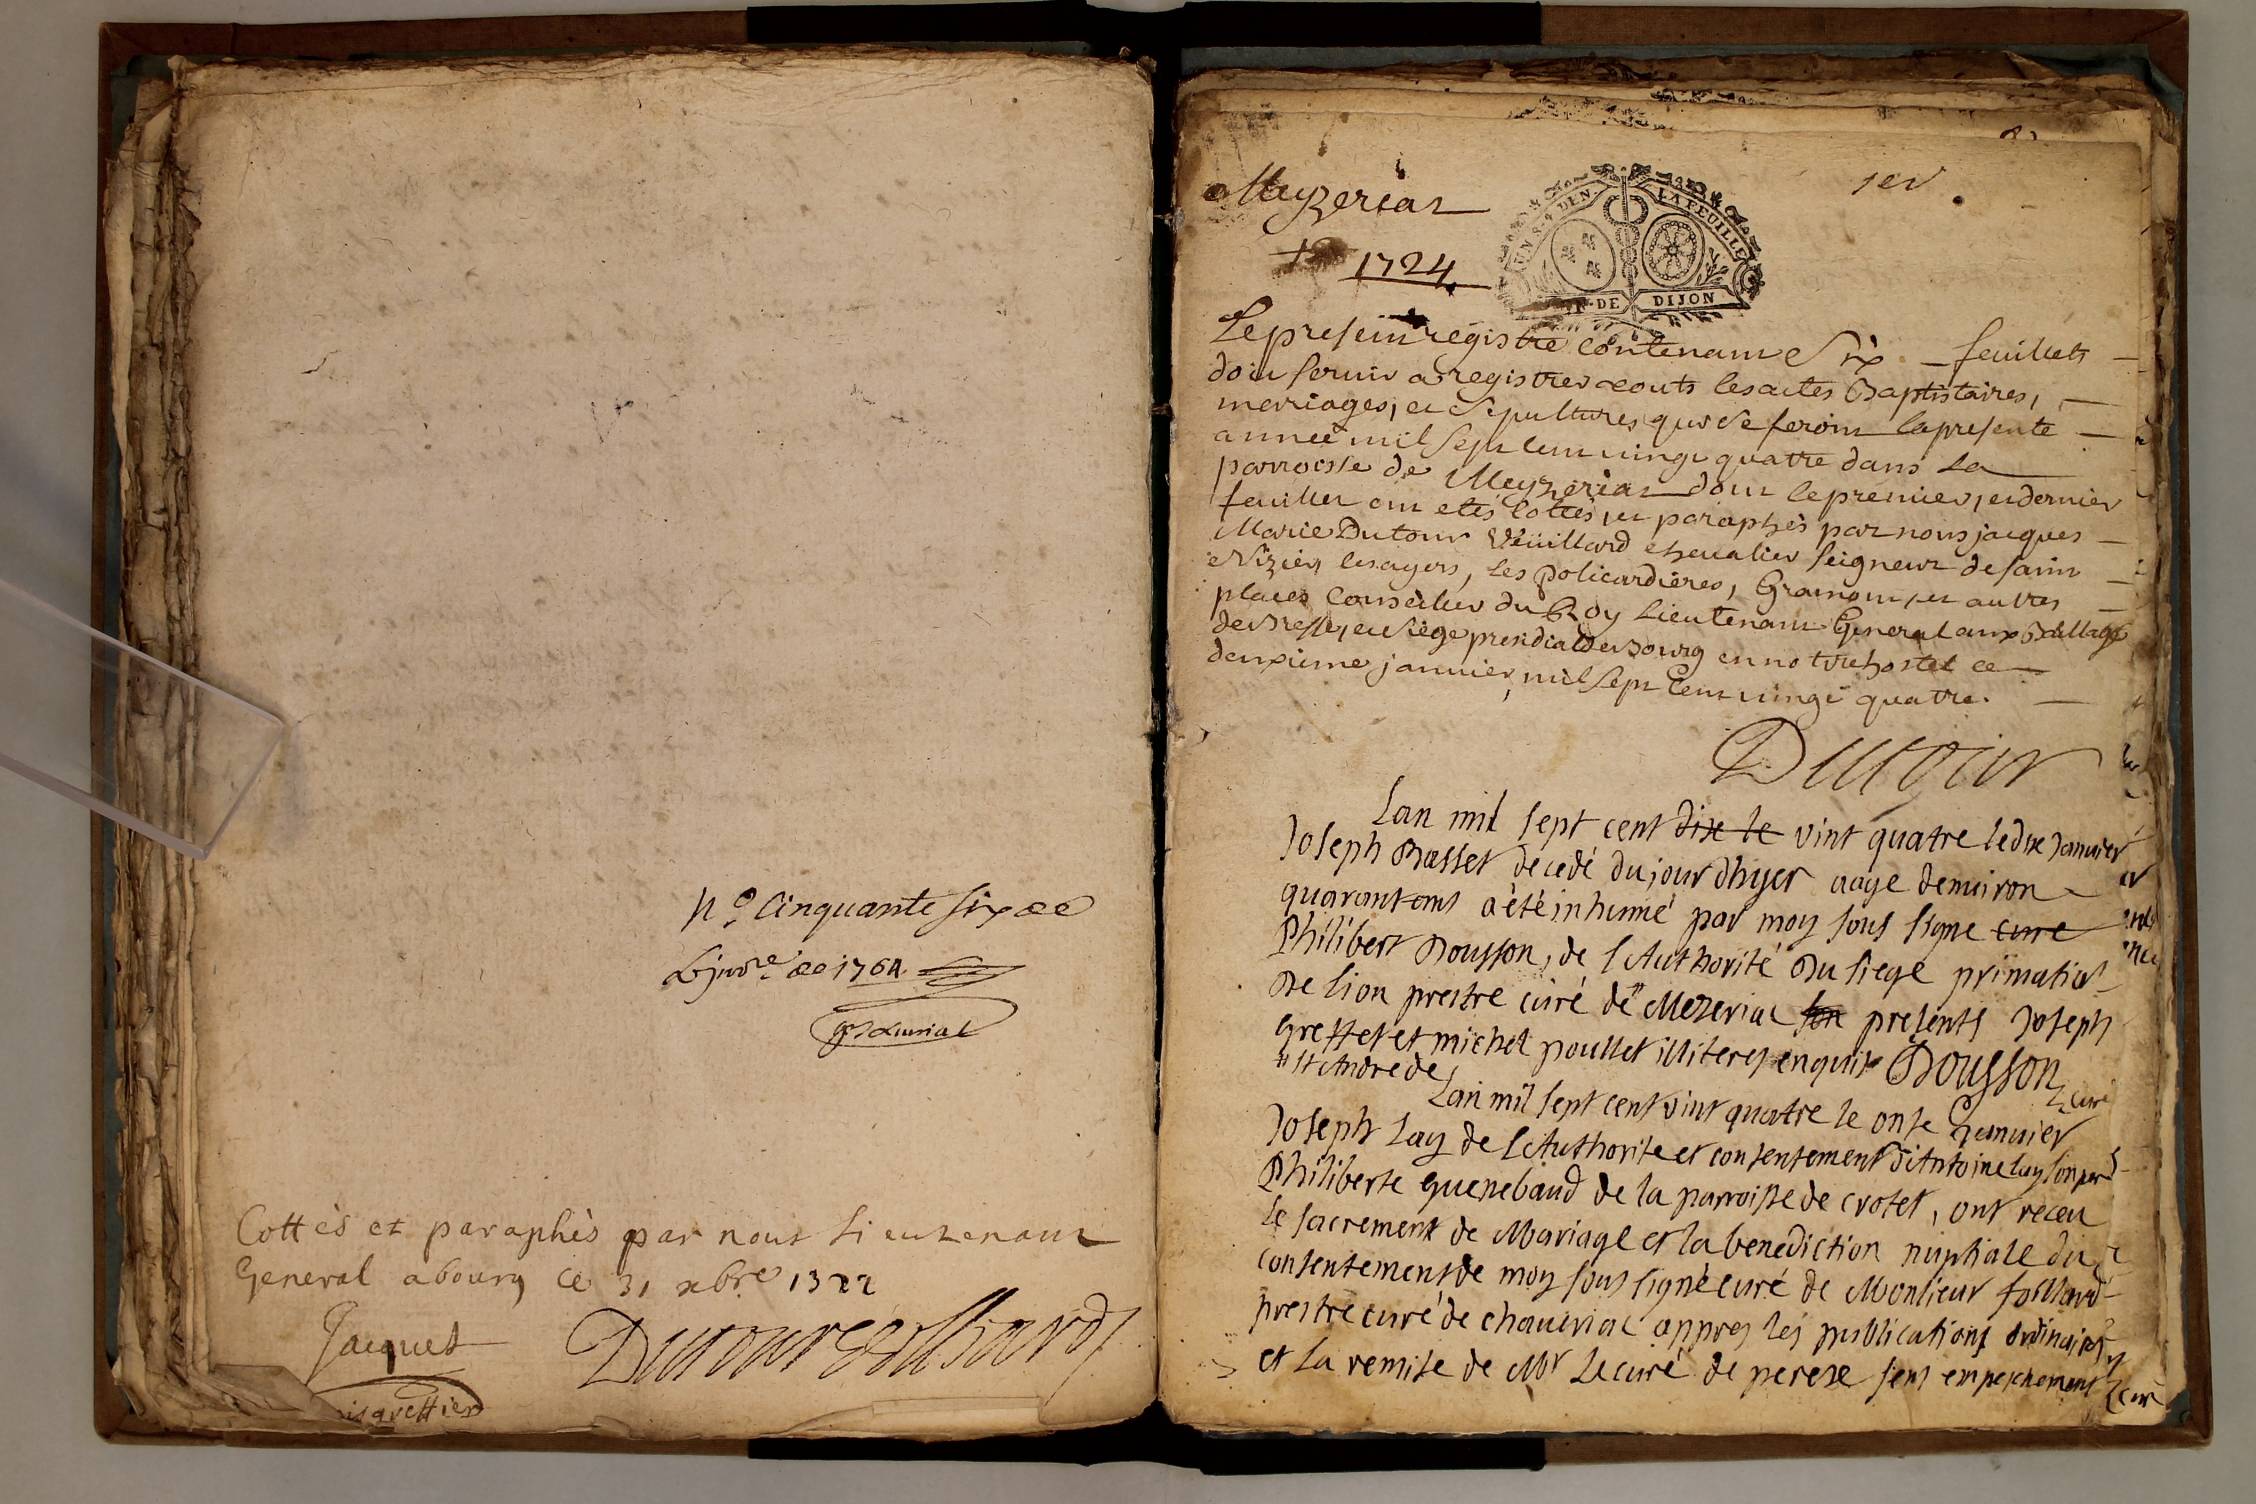 N.o Cinquante six de
L jnvre. de 1764.
Cottès et paraphès par nous Lieutenant
General a bourg ce 31 xbre 1322
Jacquet
Meyzeriat
1er
1724
UN S. 4 DEN. LA FEUILLE
DE DIJON
Le present registre contenant Six feuillets
doit servir a registrer touts les actes Baptistaires,
merriages, et Sepultures qui se feront la presente
année mil sept cent vingt quatre dans La
parroisse de Meyzériat dont le premier, et dernier
feuillet ont etés Cottés, et paraphés par nous jacques
Marie Dutour Vüillard chevalier seigneur de saint
Nizier, lesayers, Les policardières, Gramont, et autres
places Conseiller du Roy Lieutenant General aux Balliage
de Bresse, et siège presidial de Bourg en notre hostel ce
deuxieme janvier, mil sept cent vingt quatre.
Dutour
Lan mil sept cent dix le vint quatre le dix Janvier
Joseph Basset decedé du jour dhyer aage denviron
quarant ans a été inhumé par moy sous signe curé
Philibert Bousson, de l'Authorité Du siege primatial
De lion prestre curé de" Mezeriac presents Joseph
Greffet et michel poullet illiteres enquis Bousson
" st Andre de curé
Lan mil sept cent vint quatre le onse Janvier
Joseph Lay de l'Authorite et consentement d'Antoine lay son pere
Philiberte Guenebaud de la parroisse de crotet, ont receu
le sacrement de Mariage et la benediction nuptiale du
consentement de moy sous signé curé de Monsieur
prestre curé de chaveriac appres les publications ordinaires
et La remise de Mr Le curé de perexe sens empeschement